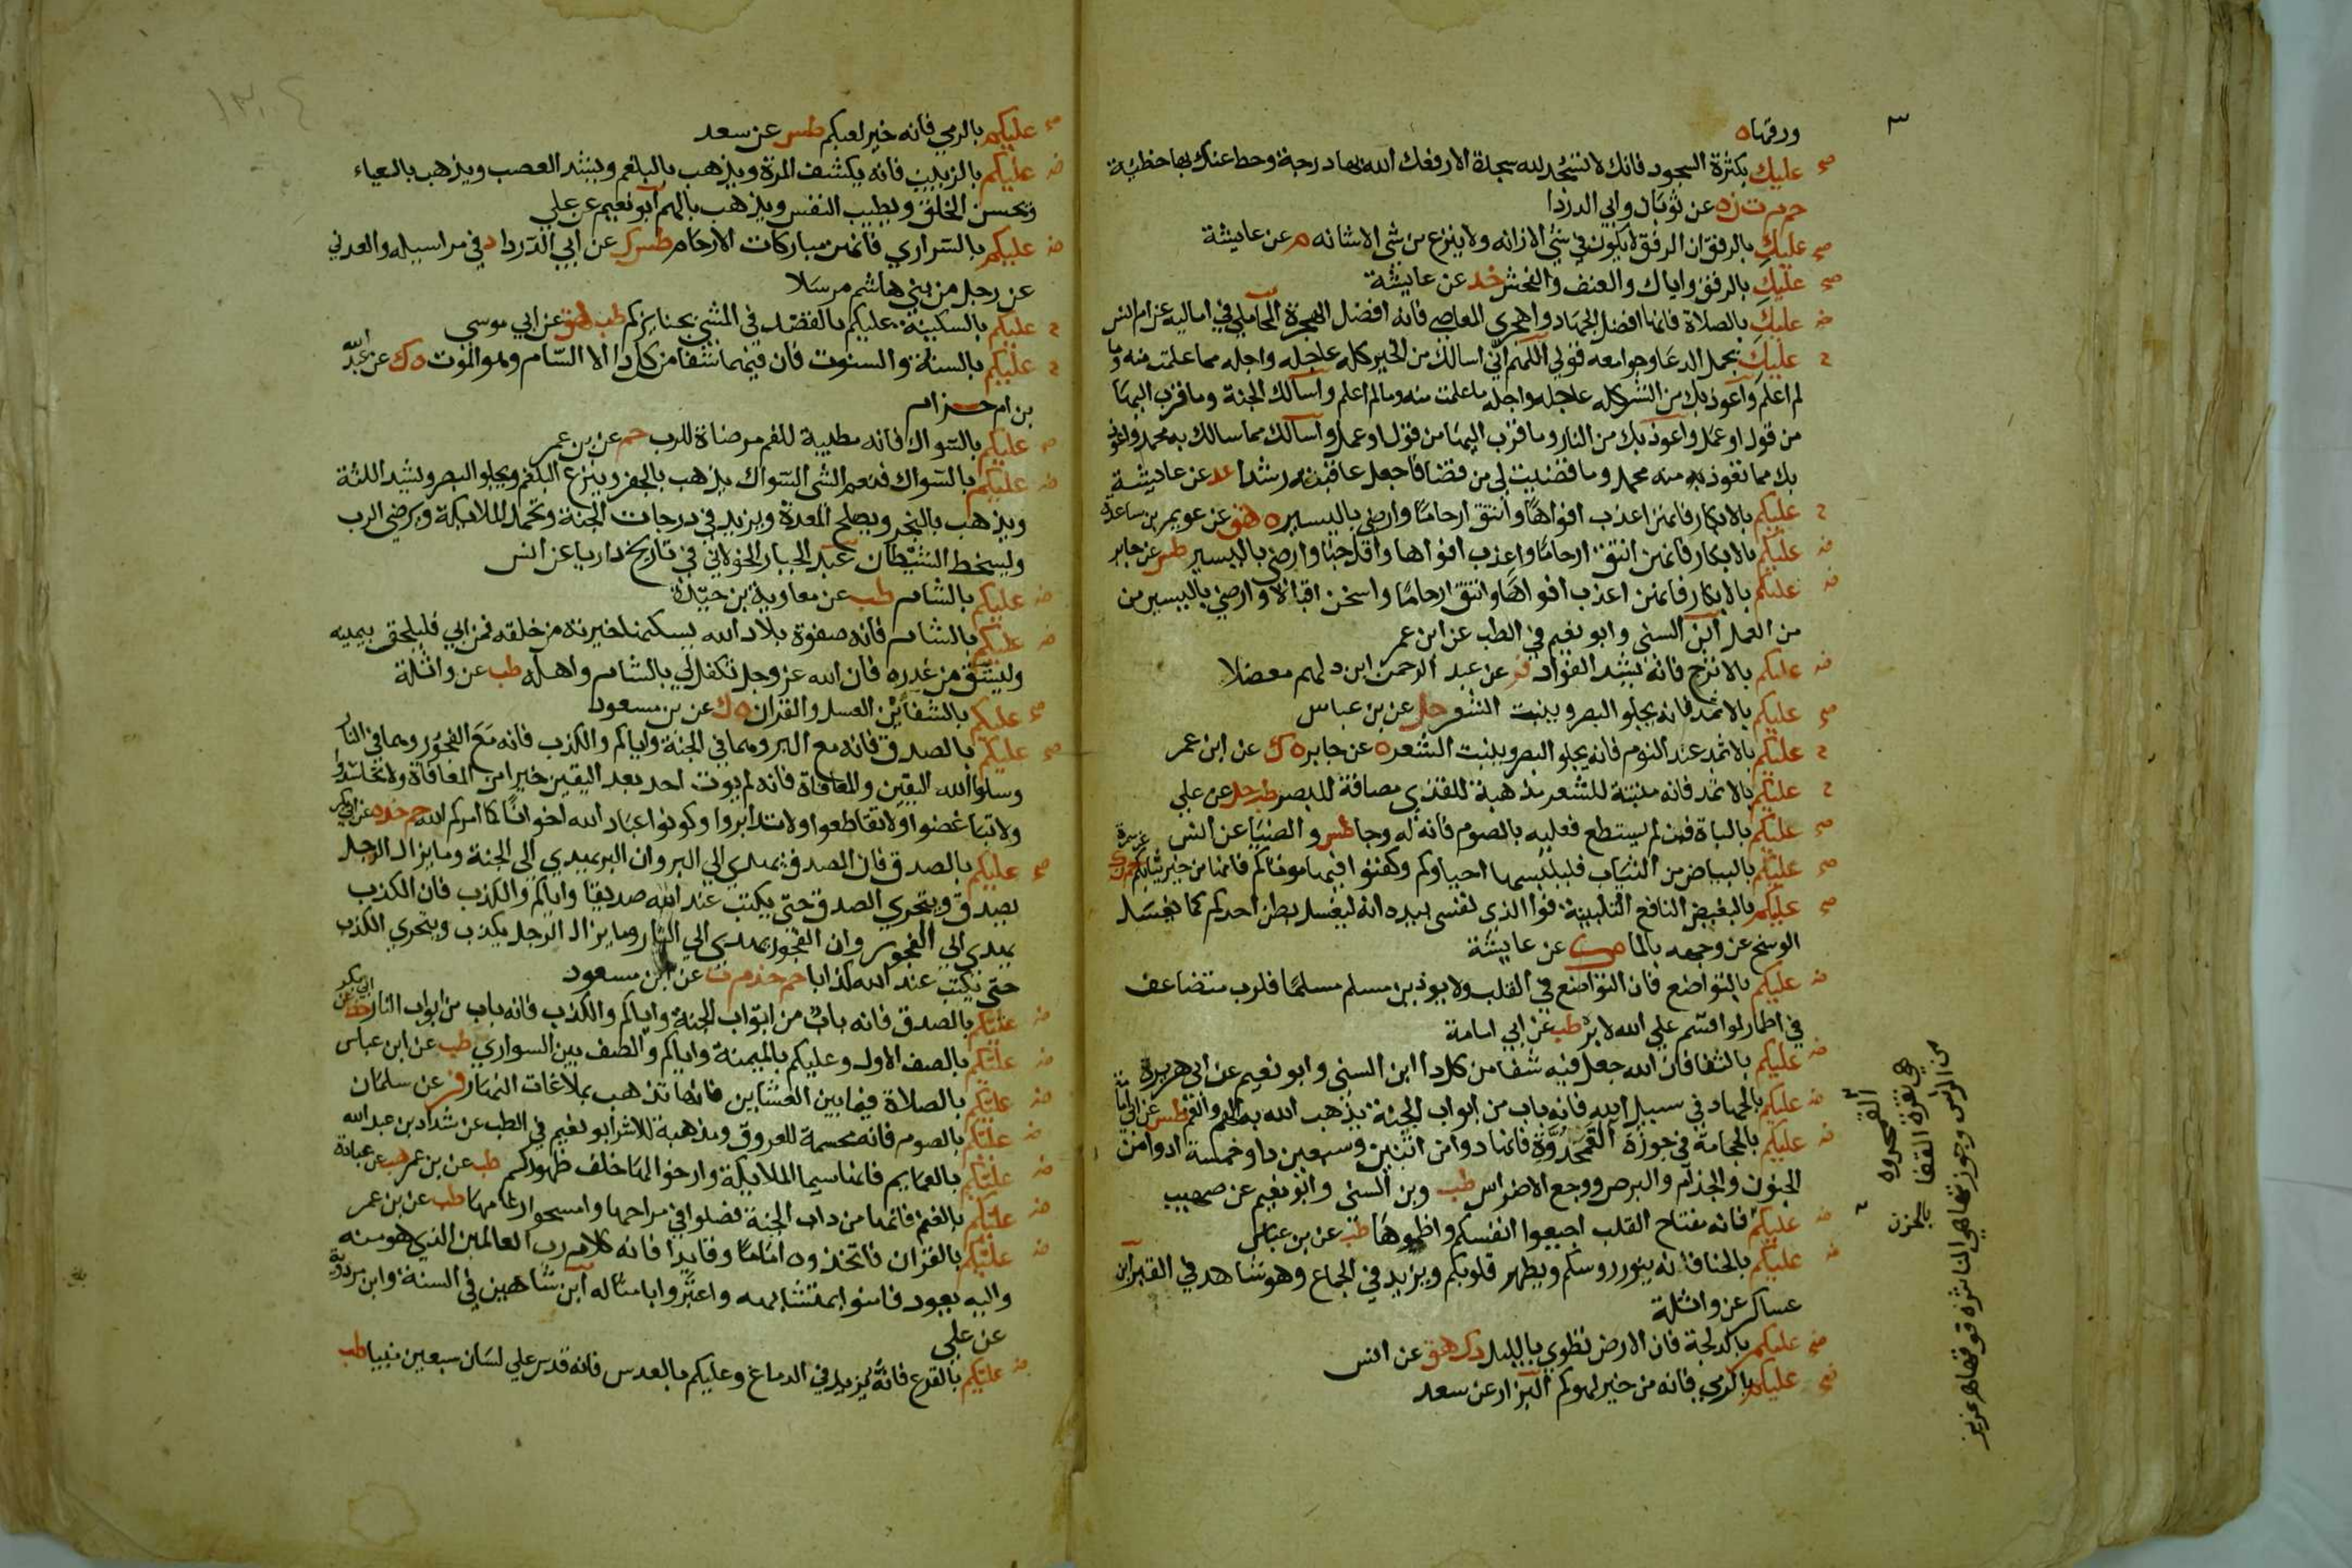 ورقها ه
صح عليك بكثرة السجود فانك لا تسجد لله سجدة الا رفعك الله بها درجة وحط عنك بها خطيئة
حم م ت ن ه عن ثوبان وابي الدردا
صح عليك بالرفق ان الرفق لا يكون في شي الا زانه ولا ينزع من شي الا شانه م عن عايشة
صح عليك بالرفق واياك والعنف والفحش خد عن عايشة
ض عليك بالصلاة فانها افضل الجهاد واهجري المعاصي فانه افضل الهجرة المحاملي في اماليه عن ام انس
ح عليك بجمل الدعا وجوامعه قولي اللهم اني اسالك من الخير كله عاجله واجله مما علمت منه وما
لم اعلم واعوذ بك من الشر كله عاجله واجله ما علمت منه وما لم اعلم واسالك الجنة وما قرب اليها
من قول او عمل واعوذ بك من النار وما قرب اليها من قول او عمل واسالك مما سالك به محمد واعوذ
بك مما تعوذ به منه محمد وما قضيت لي من قضا فاجعل عاقبته رشدا عد عن عايشة
ح عليكم بالابكار فانهن اعذب افواها وانتق ارحاما وارضي باليسير ه هق عن عويمر بن ساعدة
ض عليكم بالابكار فانهن انتق ارحاما واعذب افواها واقل خبا وارضي باليسير طس عن جابر
ض عليكم بالابكار فانهن اعذب افواها وانتق ارحاما واسخن اقبالا وارضي باليسير من
من العمل ابن السني وابو نعيم في الطب عن ابن عمر
ض عليكم بالاترج فانه يشد الفواد فر عن عبد الرحمن ابن دلهم معضلا
صح عليكم بالاثمد فانه يجلو البصر وينبت الشعر حل عن بن عباس
ح عليكم بالاثمد عند النوم فانه يجلو البصر وينبت الشعر ه عن جابر ه ك عن ابن عمر
ح عليكم بالاثمد فانه منبتة للشعر مذهبة للقذي مصافة للبصر طب حل عن علي
صح عليكم بالباة فمن لم يستطع فعليه بالصوم فانه له وجا طس والضيا عن انس
صح عليكم بالبياض من الثياب فليلبسها احياوكم وكفنوا فيها موتاكم فانها من خير ثيابكم حم ن ك عن سمرة
صح عليكم بالبغيض النافع التلبينة فوا الذي نفسي بيده انه ليغسل بطن احدكم كما يغسل
الوسخ عن وجهه بالما ه ك عن عايشة
ض عليكم بالتواضع فان التواضع في القلب ولا يوذين مسلم مسلما فلرب متضاعف
في اطمار لو اقسم علي الله لابره طب عن ابي امامة
ض عليكم بالثفا فان الله جعل فيه شفا من كل دا ابن السني وابو نعيم عن ابي هريرة
ض عليكم بالجهاد في سبيل الله فانه باب من ابواب الجنة يذهب الله به الهم والغم طس عن ابي امامة
ض عليكم بالحجامة في جوزة القمحدوة فانها دوا من اثنين وسبعين دا وخمسة ادوا من
الجنون والجذام والبرص ووجع الاضراس طب وبن السني وابو نعيم عن صهيب
ض عليكم فانه مفتاح القلب اجيعوا انفسكم واظموها طب عن بن عباس
ض عليكم بالحنا فانه ينور روسكم ويطهر قلوبكم ويزيد في الجماع وهو شاهد في القبر ابن
عساكر عن واثلة
صح عليكم بالدلجة فان الارض تطوي بالليل د ك هق عن انس
صح عليكم بالرمي فانه من خير لهوكم البزار عن سعد
القمحدوه
هي نقرة القفا
من الراس وجوزتها هي الناشزة فوقها هر عزيز
بالحزن
صح عليكم بالرمي فانه خير لعبكم طس عن سعد
ض عليكم بالزبيب فانه يكشف المرة ويذهب بالبلغم ويشد العصب ويذهب بالعياء
ويحسن الخلق ويطيب النفس ويذهب بالهم ابو نعيم عن علي
ض عليكم بالسراري فانهن مباركات الارحام طس ك عن ابي الدردا د في مراسيله والعدني
عن رجل من بني هاشم مرسلا
ح عليكم بالسكينة عليكم بالقصد في المشي بجنايزكم طب هق عن ابي موسي
ح عليكم بالسنة والسنوت فان فيهما شفا من كل دا الا السام وهو الموت ه ك عن عبد الله
بن ام حزام
ص عليكم بالسواك فانه مطيبة للفم مرضاة للرب حم عن بن عمر
ض عليكم بالسواك فنعم الشي السواك يذهب بالحفر وينزع البلغم ويجلو البصر ويشد اللثة
ويذهب بالبخر ويصلح المعدة ويزيد في درجات الجنة وتحمد الملايكة ويرضي الرب
ويسخط الشيطان عبد الجبار الخولاني في تاريخ داريا عن انس
ض عليكم بالشام طب عن معاوية بن حيدة
ض عليكم بالشام فانه صفوة بلاد الله يسكنها خيرته من خلقه فمن ابي فليلحق بيمنه
وليسق من غدره فان الله عز وجل تكفل لي بالشام واهله طب عن واثلة
صح عليكم بالشفائين العسل والقران ه ك عن بن مسعود
صح عليكم بالصدق فانه مع البر وهما في الجنة واياكم والكذب فانه مع الفجور وهما في النار
وسلوا الله اليقين والمعافاة فانه لم يوت احد بعد اليقين خيرا من المعافاة ولا تحاسدوا
ولا تباغضوا ولا تقاطعوا ولا تدابروا وكونوا عباد الله اخوانا كما امركم الله حم خد ه عن ابي بكر
صح عليكم بالصدق فان الصدق يهدي الي البر وان البر يهدي الي الجنة وما يزال الرجل
يصدق ويتحري الصدق حتي يكتب عند الله صديقا واياكم والكذب فان الكذب
يهدي الي الفجور وان الفجور يهدي الي النار وما يزال الرجل يكذب ويتحري الكذب
حتي يكتب عند الله كذابا حم خد م ت عن ابن مسعود
ض عليكم بالصدق فانه باب من ابواب الجنة واياكم والكذب فانه باب من ابواب النار خط عن ابي بكر
ض عليكم بالصف الاول وعليكم بالميمنة واياكم والصف بين السواري طب عن ابن عباس
ض عليكم بالصلاة فيما بين العشاين فانها تذهب بملاغات النهار فر عن سلمان
ض عليكم بالصوم فانه محسمة للعروق ومذهبة للاشر ابو نعيم في الطب عن شداد بن عبد الله
ض عليكم بالعمايم فانها سيما الملايكة وارخوا لها خلف ظهوركم طب عن بن عمر هب عن عبادة
ض عليكم بالغنم فانها من داب الجنة فصلوا في مراحها وامسحوا رغامها طب عن بن عمر
ض عليكم بالقران فاتخذوه اماما وقايدا فانه كلام رب العالمين الذي هو منه
واليه يعود فامنوا بمتشابهه واعتبروا بامثاله ابن شاهين في السنة وابن مردوية
عن علي
ض عليكم بالقرع فانه يزيد في الدماغ وعليكم بالعدس فانه قدس علي لسان سبعين نبيا طب